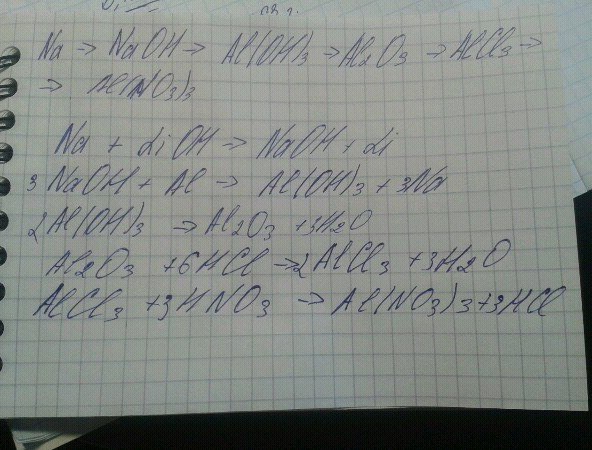 Na → NaOH → Al(OH)3 → Al2O3 → AlCl3 →
→ Al(NO3)3
Na + LiOH → NaOH + Li
3NaOH + Al → Al(OH)3 + 3Na
2Al(OH)3 → Al2O3 + 3H2O
Al2O3 + 6HCl → 2AlCl3 + 3H2O
AlCl3 + 3HNO3 → Al(NO3)3 + 3HCl